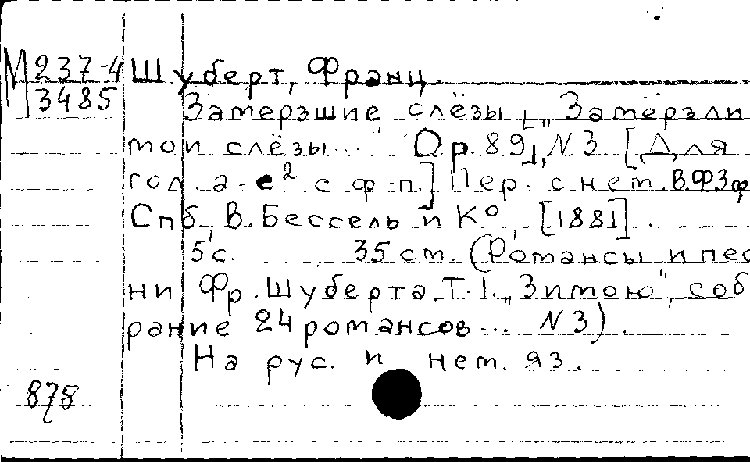 М 237-4 Шуберт, Франц.
3485 Замерзшие слёзы [„Замёрзли
мои слёзы..." Op. 89], N 3 [Для
гол. a-e² с ф-п.] Пер. с нем.
Спб, В. Бессель и К°, [1881].
5 с. 35 см. (Романсы и пес
ни Фр. Шуберта. Т. I. „Зимою", соб
рание 24 романсов... N 3).
На рус. и нем. яз.
878